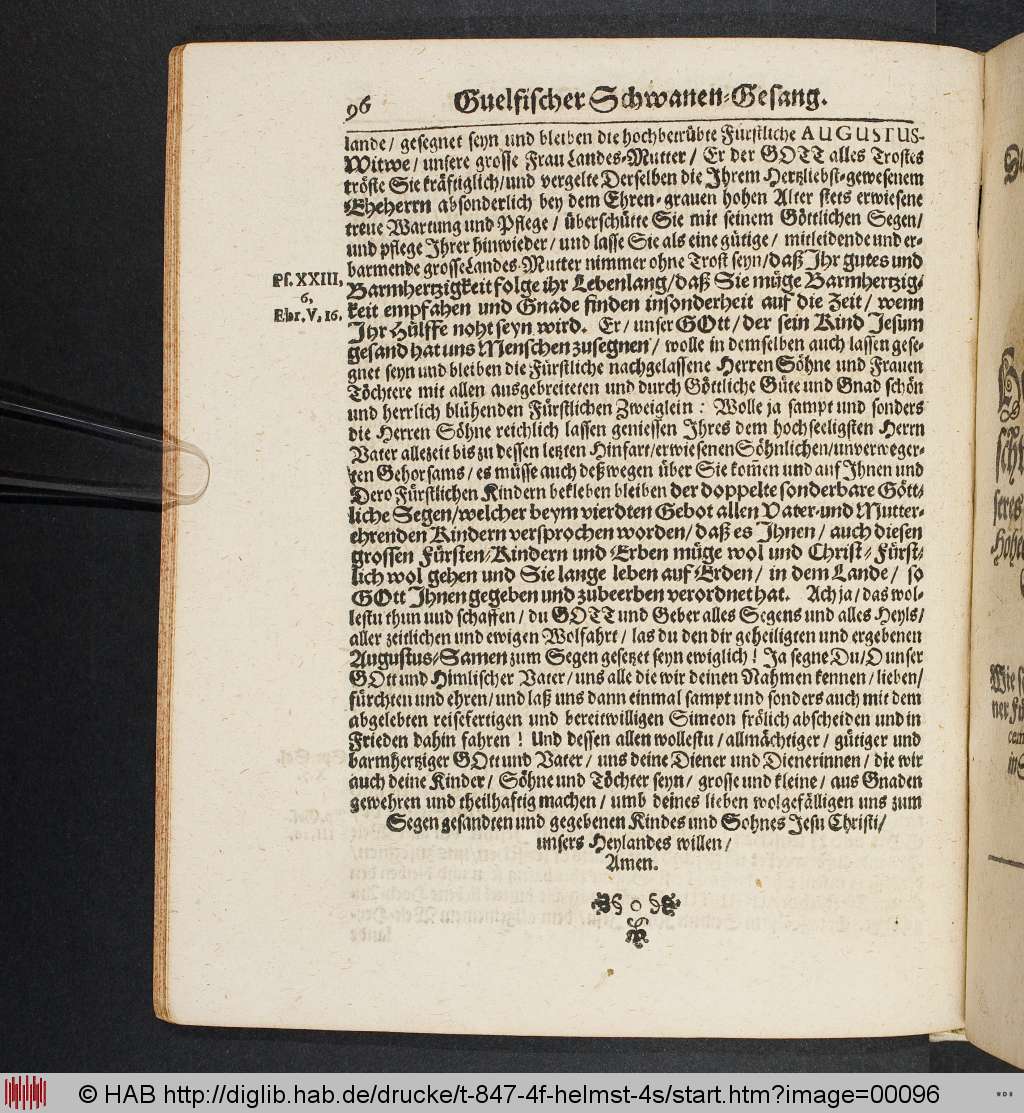 96 Guelfischer Schwanen-Gesang.
lande / gesegnet seyn und bleiben die hochbetrübte Fürstliche AUGUSTUS-
Witwe / unsere grosse Frau Landes-Mutter / Er der GOTT alles Trostes
tröste Sie kräftiglich / und vergelte Derselben die Ihrem Hertzliebst-gewesenem
Eheherrn absonderlich bey dem Ehren-grauen hohen Alter stets erwiesene
treue Wartung und Pflege / überschütte Sie mit seinem Göttlichen Segen /
und pflege Ihrer hinwieder / und lasse Sie als eine gütige / mitleidende und er-
barmende grosse Landes-Mutter nimmer ohne Trost seyn / daß Ihr gutes und
Ps. XXIII,
6,
Ebr. V. 16.
Barmhertzigkeit folge ihr Lebenlang / daß Sie müge Barmhertzig-
keit empfahen und Gnade finden insonderheit auf die Zeit / wenn
Ihr Hülffe noht seyn wird. Er / unser GOtt / der sein Kind Jesum
gesand hat uns Menschen zusegnen / wolle in demselben auch lassen gese-
gnet seyn und bleiben die Fürstliche nachgelassene Herren Söhne und Frauen
Töchtere mit allen ausgebreiteten und durch Göttliche Güte und Gnad schön
und herrlich blühenden Fürstlichen Zweiglein : Wolle ja sampt und sonders
die Herren Söhne reichlich lassen geniessen Ihres dem hochseeligsten Herrn
Vater allezeit bis zu dessen letzten Hinfart / erwiesenen Söhnlichen / unverweger-
ten Gehorsams / es müsse auch deßwegen über Sie komen und auf Ihnen und
Dero Fürstlichen Kindern bekleben bleiben der doppelte sonderbare Gött-
liche Segen / welcher beym vierdten Gebot allen Vater-und Mutter-
ehrenden Kindern versprochen worden / daß es Ihnen / auch diesen
grossen Fürsten-Kindern und Erben müge wol und Christ-Fürst-
lich wol gehen und Sie lange leben auf Erden / in dem Lande / so
GOtt Ihnen gegeben und zubeerben verordnet hat. Ach ja / das wol-
lestu thun und schaffen / du GOTT und Geber alles Segens und alles Heyls /
aller zeitlichen und ewigen Wolfahrt / las du den dir geheiligten und ergebenen
Augustus-Samen zum Segen gesetzet seyn ewiglich ! Ja segne Du / O unser
GOtt und Himlischer Vater / uns alle die wir deinen Nahmen kennen / lieben /
fürchten und ehren / und laß uns dann einmal sampt und sonders auch mit dem
abgelebten reisefertigen und bereitwilligen Simeon frölich abscheiden und in
Frieden dahin fahren ! Und dessen allen wollestu / allmächtiger / gütiger und
barmhertziger GOtt und Vater / uns deine Diener und Dienerinnen / die wir
auch deine Kinder / Söhne und Töchter seyn / grosse und kleine / aus Gnaden
gewehren und theilhaftig machen / umb deines lieben wolgefälligen uns zum
Segen gesandten und gegebenen Kindes und Sohnes Jesu Christi /
unsers Heylandes willen /
Amen.
© HAB http://diglib.hab.de/drucke/t-847-4f-helmst-4s/start.htm?image=00096